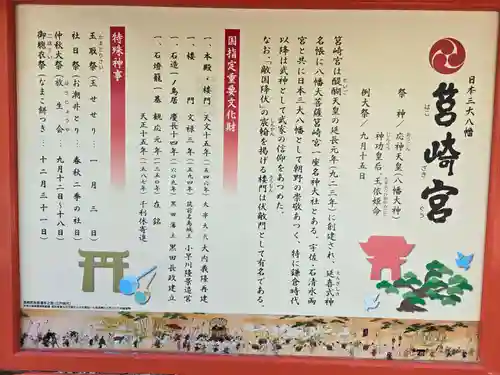 日本三大八幡
筥崎宮
はこ ざき ぐう
祭　神／応神天皇（八幡大神）
神功皇后 玉依姫命
例大祭／九月十五日
筥崎宮は醍醐天皇の延長元年（九二三年）に創建され、延喜式神
名帳に八幡大菩薩筥崎宮一座名神大社とある。宇佐・石清水両
宮と共に日本三大八幡として朝野の崇敬あつく、特に鎌倉時代
以降は武神として武家の信仰をあつめた。
なお、「敵国降伏」の宸翰を掲げる楼門は伏敵門として有名である。
国指定重要文化財
一、本殿・楼門 天文十五年（一五四六年） 大宰大弐 大内義隆再建
一、楼　門 文禄三年（一五九四） 筑前名島城主 小早川隆景造営
一、石造一ノ鳥居 慶長十四年（一六〇九年） 黒田藩主 黒田長政建立
一、石燈籠一基 観応元年（一三五〇年） 在銘
天正十五年（一五八七年） 千利休寄進
特殊神事
玉取祭（玉せせり）… 一月三日
社日祭（お潮井とり）… 春秋二季の社日
仲秋大祭（放生会）… 九月十二日〜十八日
御胞衣祭（なまこ餅つき）… 十二月三十一日）